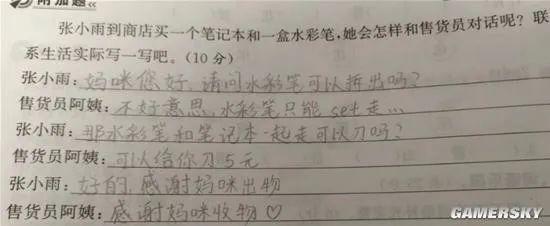 附加题
张小雨到商店买一个笔记本和一盒水彩笔,她会怎样和售货员对话呢? 联
系生活实际写一写吧。(10分)
张小雨:妈咪您好,请问水彩笔可以拆出吗?
售货员阿姨:不好意思,水彩笔只能set走…
张小雨:那水彩笔和笔记本一起走可以刀吗?
售货员阿姨:可以给你刀5元
张小雨:好的,感谢妈咪出物
售货员阿姨:感谢妈咪收物♡
GAMERSKY